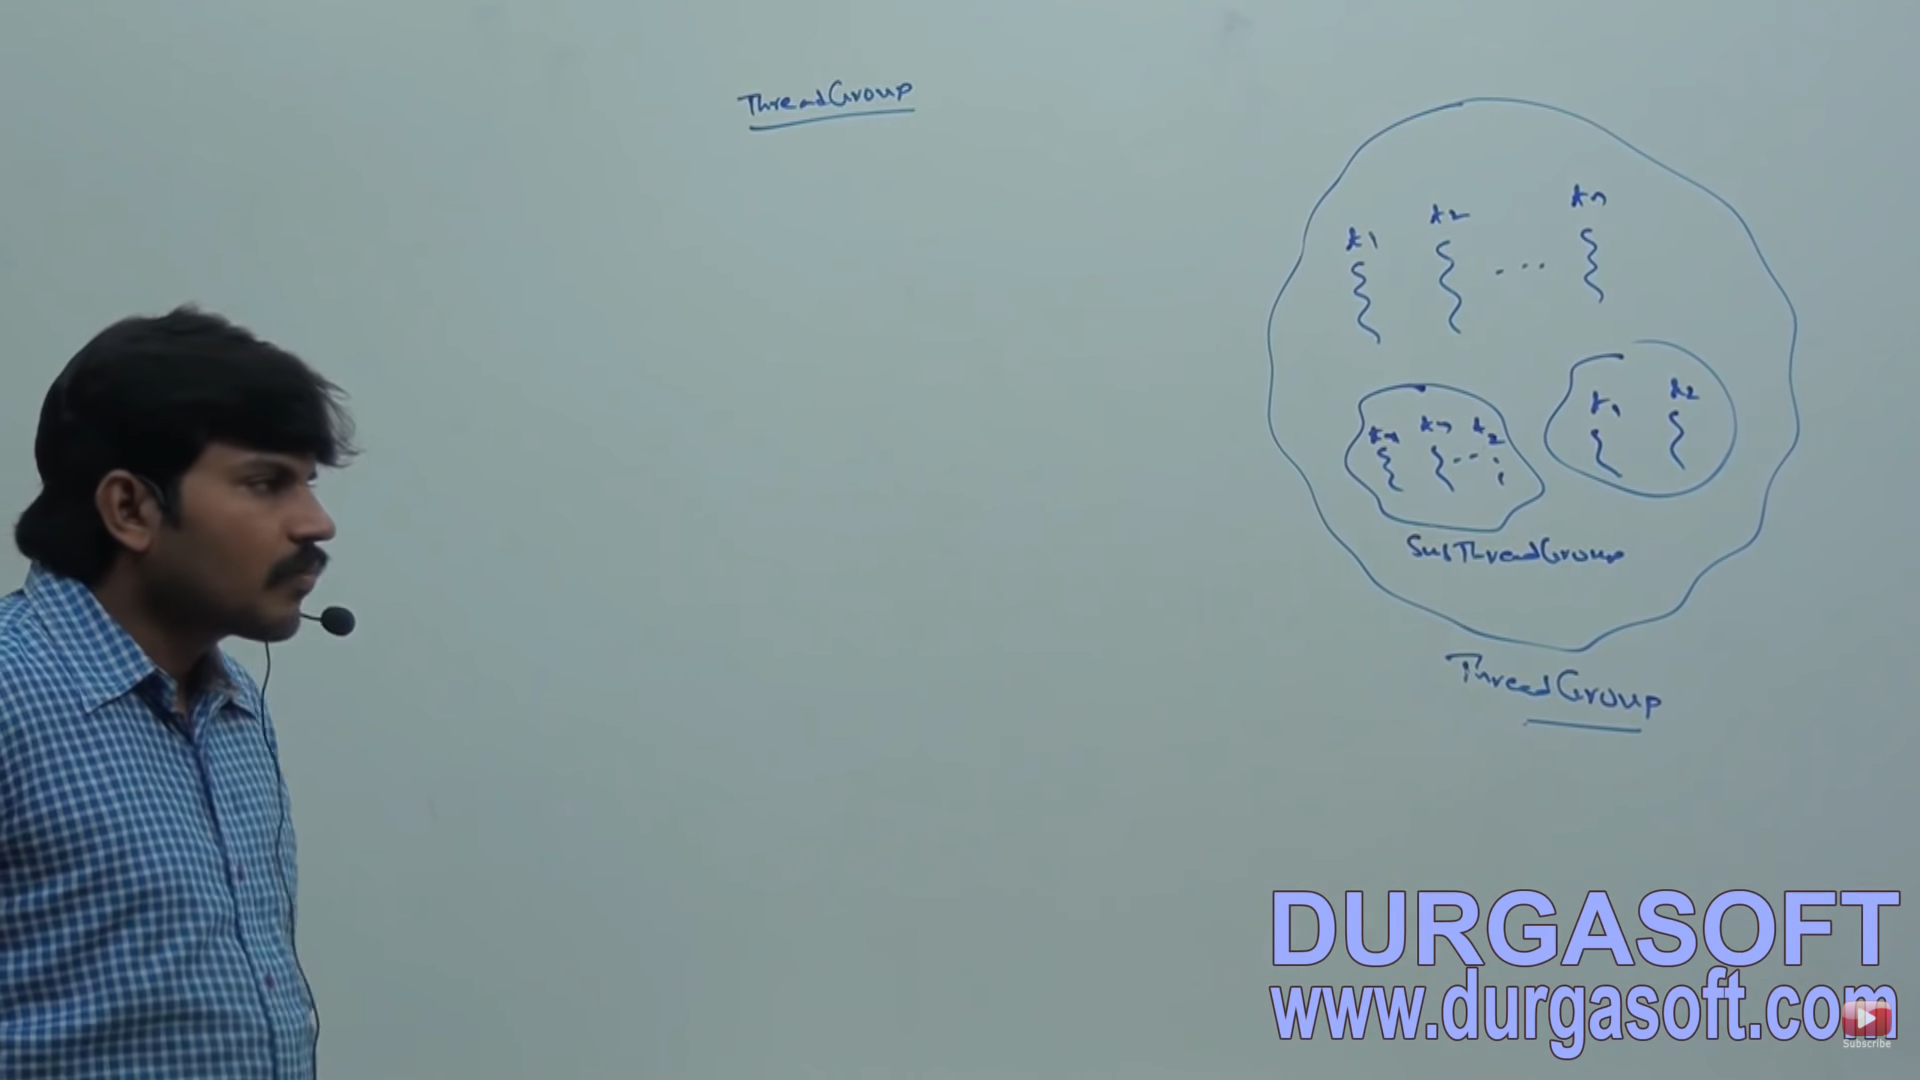 ThreadGroup
t1 t2 ... tn
t1 t2
tm tn ... tz
SubThreadGroup
ThreadGroup
DURGASOFT
www.durgasoft.com
Subscribe